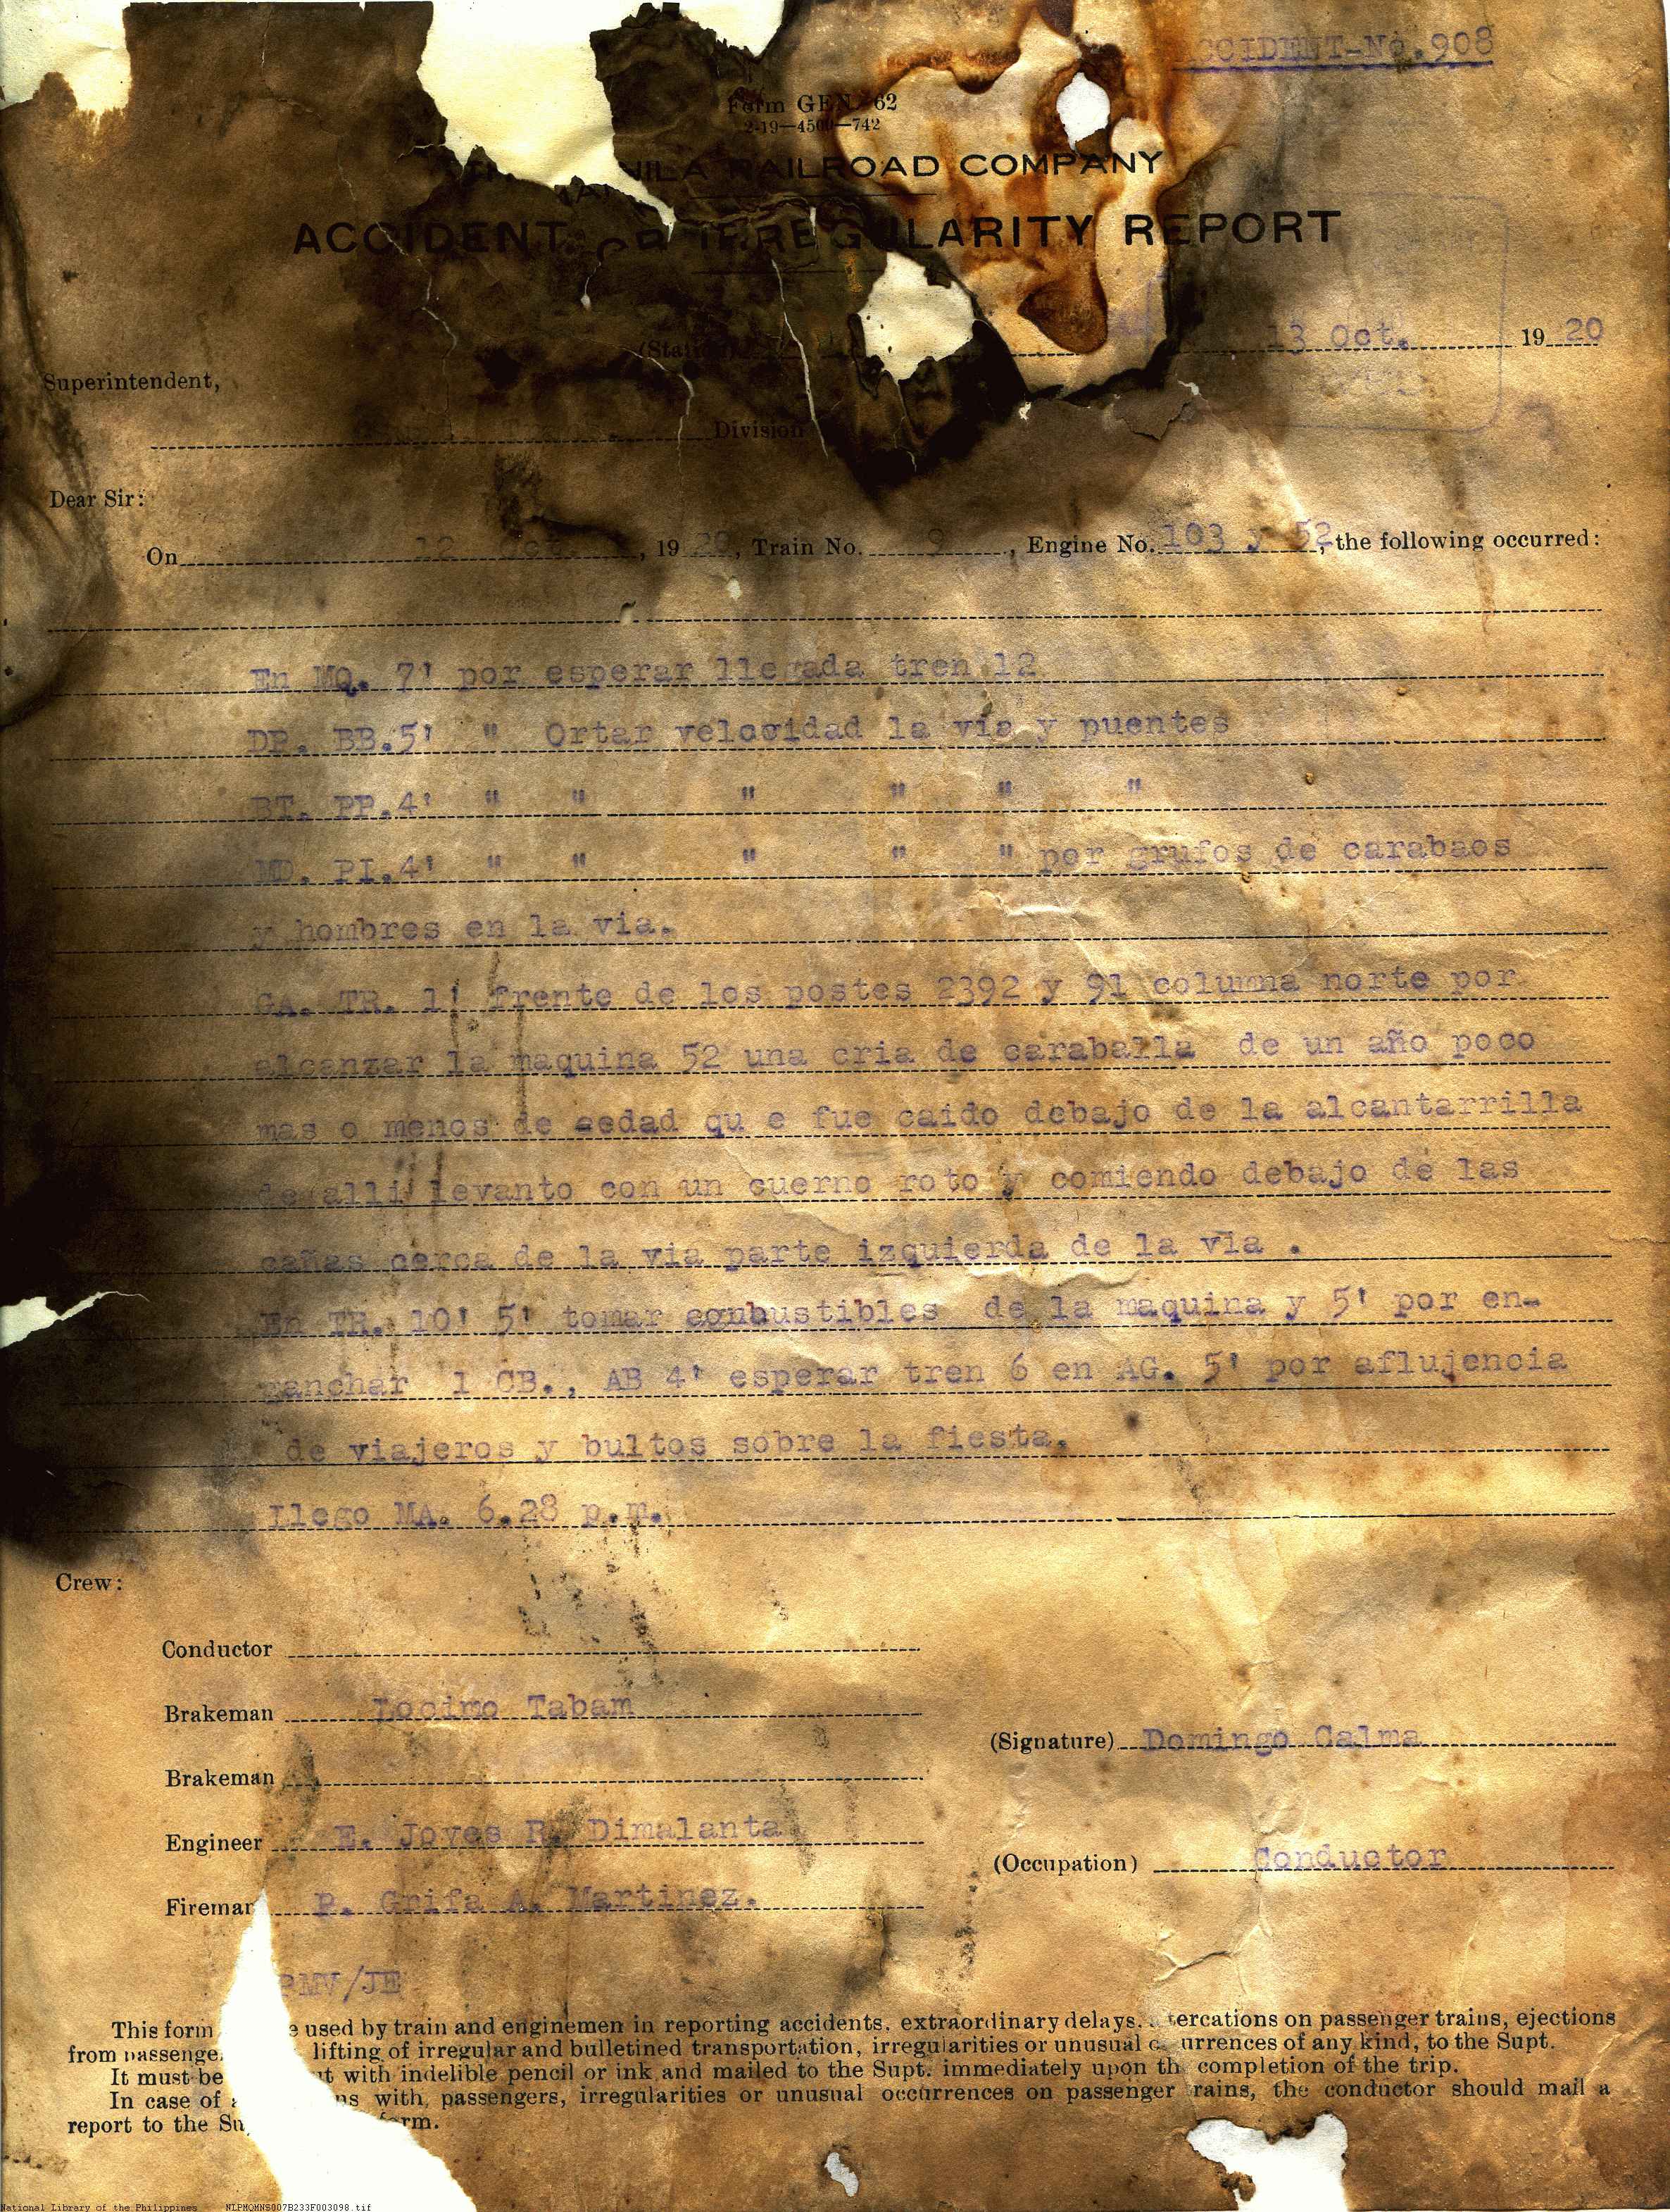 CCIDENT-No.908
Form GEN. 62
2-19—4500—742
NILA RAILROAD COMPANY
ACCIDENT OR IRREGULARITY REPORT
13 Oct. 1920
Superintendent,
Division
Dear Sir:
On 12 Oct. , 1920, Train No. 9 , Engine No. 103 y 52, the following occurred:
En MQ. 7' por esperar llegada tren 12
DP. BB.5' " Ortar velocidad la via y puentes
BT. PP.4' " " " " " "
MD. PI.4' " " " " " por grufos de carabaos
y hombres en la via.
GA. TR. 1' frente de los postes 2392 y 91 columna norte por
alcanzar la maquina 52 una cria de caraballa de un año poco
mas o menos de eedad qu e fue caido debajo de la alcantarrilla
de alli levanto con un cuerno roto y comiendo debajo de las
cañas cerca de la via parte izquierda de la via .
En TR. 10' 5' tomar combustibles de la maquina y 5' por en-
ganchar 1 CB., AB 4' esperar tren 6 en AG. 5' por aflujencia
de viajeros y bultos sobre la fiesta.
Llego MA. 6.28 p.m.
Crew:
Conductor
Brakeman Locimo Tabam
(Signature) Domingo Calma
Brakeman
Engineer E. Joves R. Dimalanta
(Occupation) Conductor
Fireman P. Grifa A. Martinez.
RMV/JE
This form e used by train and enginemen in reporting accidents, extraordinary delays, tercations on passenger trains, ejections
from passenge lifting of irregular and bulletined transportation, irregularities or unusual oc urrences of any kind, to the Supt.
It must be t with indelible pencil or ink and mailed to the Supt. immediately upon th completion of the trip.
In case of a ns with passengers, irregularities or unusual occurrences on passenger rains, the conductor should mail a
report to the Su rm.
National Library of the Philippines NLPMOMNS007B233F003098.tif